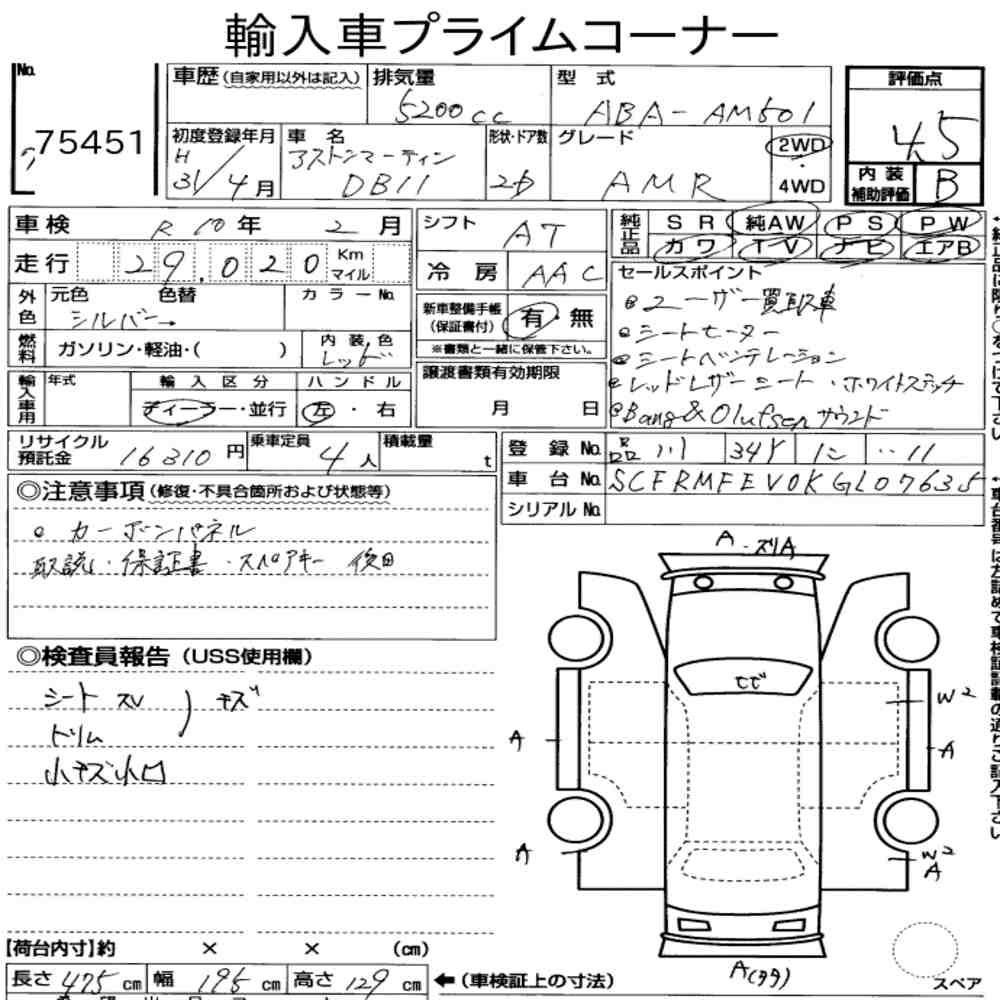 輸入車プライムコーナー
No. 75451
車歴(自家用以外は記入) 排気量 5200cc 型式 ABA-AM501
評価点 4.5
内装補助評価 B
初度登録年月 H 31/4月
車名 アストンマーティン DB11
形状・ドア数 2D
グレード AMR
2WD・4WD
車検 R10年 2月
走行 29.020 Km マイル
シフト AT
冷房 AAC
純正品 SR 純AW PS PW
カワ TV ナビ エアB
外色 元色 色替 シルバー→ カラーNo.
燃料 ガソリン・軽油・( ) 内装色 レッド
新車整備手帳(保証書付) 有・無
※書類と一緒に保管下さい。
譲渡書類有効期限 月 日
輸入車用 年式 輸入区分 ディーラー・並行 ハンドル 左・右
セールスポイント
ユーザー買取車
シートヒーター
シートベンチレーション
レッドレザーシート・ホワイトステッチ
Bang&Olufsenサウンド
リサイクル預託金 16310円 乗車定員 4人 積載量 t
登録No. 品川 ‥11
車台No. SCFRMFEV0KGL07635
シリアルNo.
◎注意事項(修復・不具合箇所および状態等)
カーボンパネル
取説・保証書・スペアキー 後日
◎検査員報告(USS使用欄)
シート スレ ) キズ
トリム
小キズ小凹
A・スリA
ヒビ
W2
A
A
A
W2
A
A(タタ)
スペア
【荷台内寸】約 × × (cm)
長さ 475cm 幅 195cm 高さ 129cm
←(車検証上の寸法)